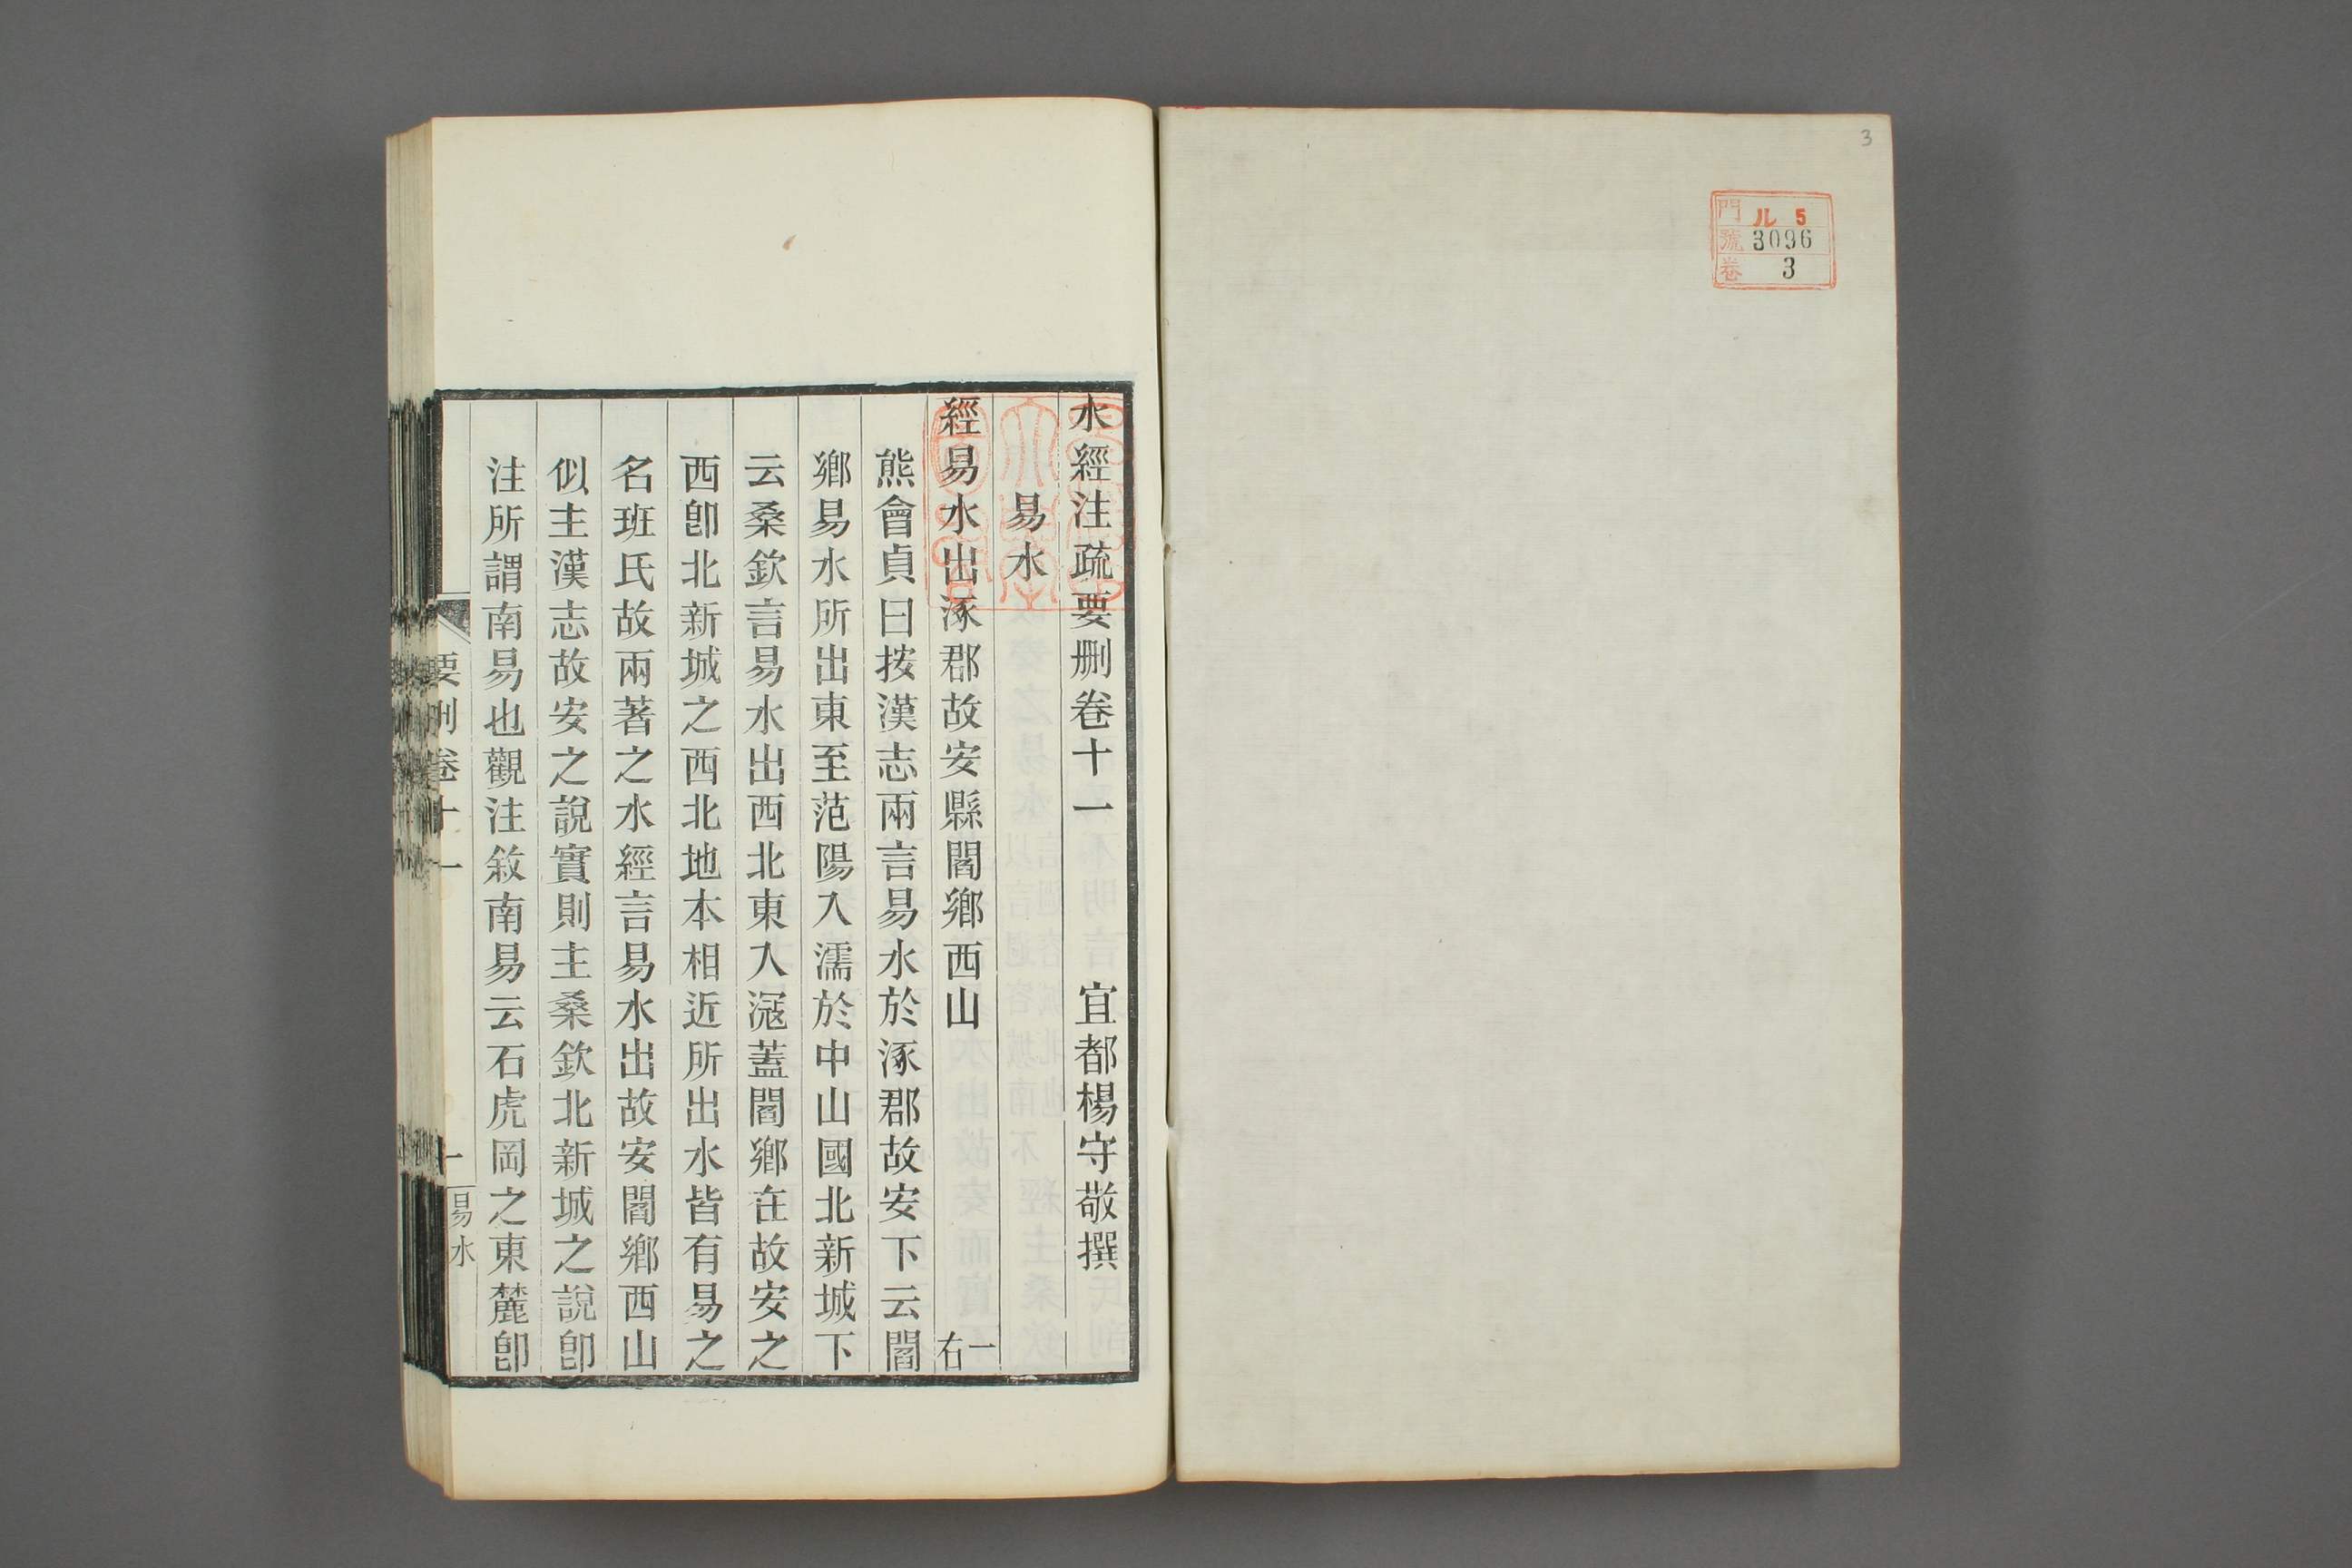 3
門 ル 5
號 3096
卷 3
水經注疏要刪卷十一 宜都楊守敬撰
易水
經易水出涿郡故安縣閻鄉西山 一右
熊會貞曰按漢志兩言易水於涿郡故安下云閻
鄉易水所出東至范陽入濡於中山國北新城下
云桑欽言易水出西北東入滱蓋閻鄉在故安之
西卽北新城之西北地本相近所出水皆有易之
名班氏故兩著之水經言易水出故安閻鄉西山
似主漢志故安之說實則主桑欽北新城之說卽
注所謂南易也觀注敘南易云石虎岡之東麓卽
要刪卷十一 一 易水